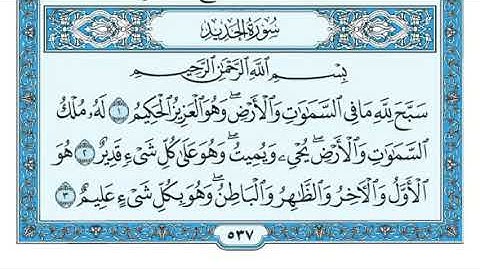 سُورَةُ الحَدِيدِ
بِسْمِ اللَّهِ الرَّحْمَٰنِ الرَّحِيمِ
سَبَّحَ لِلَّهِ مَا فِي السَّمَٰوَٰتِ وَالْأَرْضِۖ وَهُوَ الْعَزِيزُ الْحَكِيمُ ١ لَهُۥ مُلْكُ
السَّمَٰوَٰتِ وَالْأَرْضِۖ يُحْيِۦ وَيُمِيتُۖ وَهُوَ عَلَىٰ كُلِّ شَيْءٍ قَدِيرٌ ٢ هُوَ
الْأَوَّلُ وَالْآخِرُ وَالظَّٰهِرُ وَالْبَاطِنُۖ وَهُوَ بِكُلِّ شَيْءٍ عَلِيمٌ ٣
٥٣٧